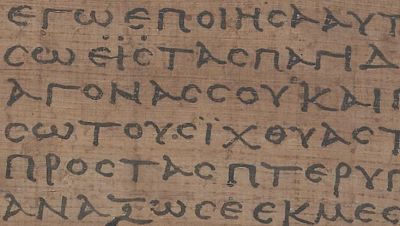 ΕΓΩΕΠΟΙΗϹΑΑΥΤ
ϹΩΕΪϹΤΑϹΠΑΓΙΔ
ΑΓΟΝΑϹϹΟΥΚΑΙΠ
ϹΩΤΟΥϹΪΧΘΥΑϹΤ
ΠΡΟϹΤΑϹΠΤΕΡΥΓ
ΑΝΑΞΩϹΕΕΚΜΕϹ